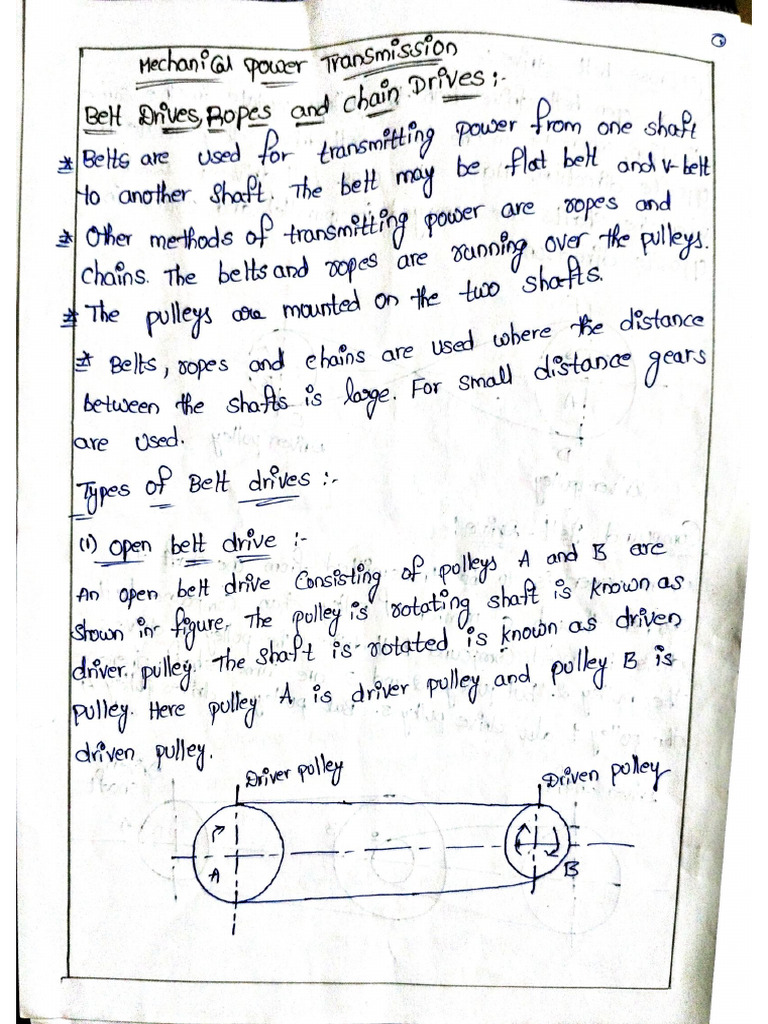 Mechanical power Transmission
Belt Drives, Ropes and chain Drives :-
* Belts are used for transmitting power from one shaft
to another shaft. The belt may be flat belt and v-belt
* Other methods of transmitting power are ropes and
chains. The belts and ropes are running over the pulleys.
* The pulleys are mounted on the two shafts.
* Belts, ropes and chains are used where the distance
between the shafts is large. For small distance gears
are used.
Types of Belt drives :-
(1) open belt drive :-
An open belt drive Consisting of polleys A and B are
shown in figure. The pulley is rotating shaft is known as
driver pulley. The shaft is rotated is known as driven
pulley. Here pulley A is driver pulley and pulley B is
driven pulley.
Driver polley
Driven polley
A
B